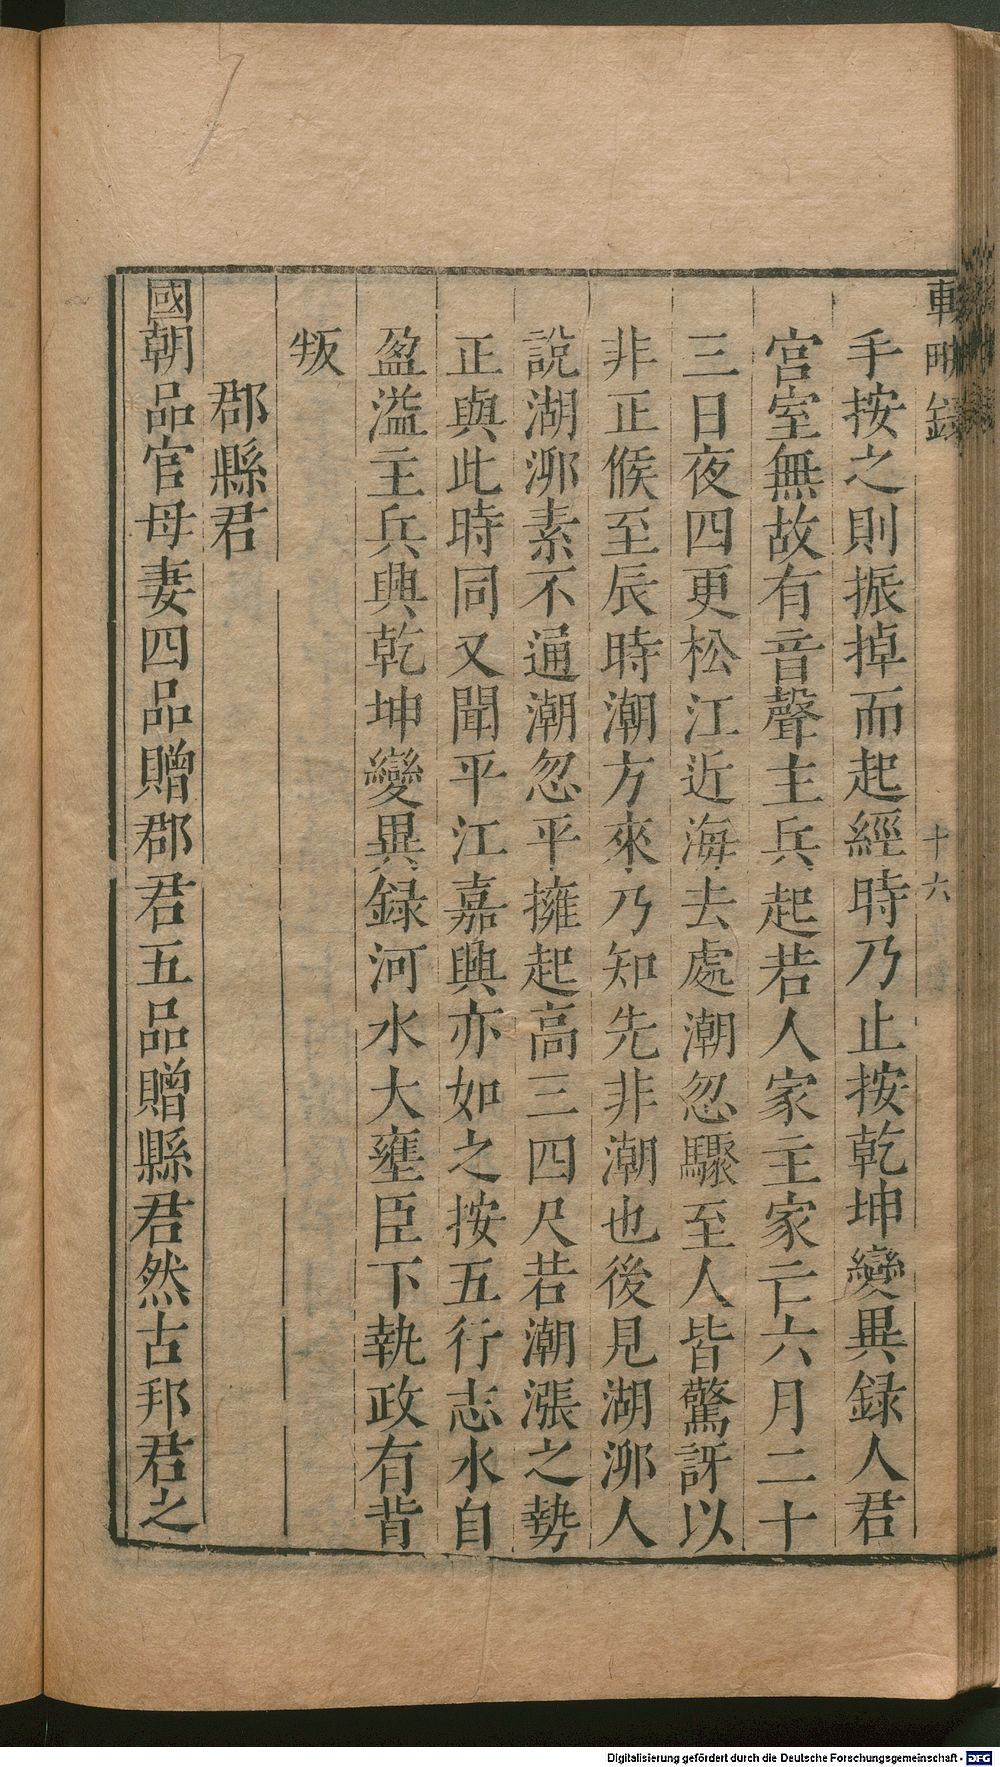 輟畊錄
十六
手按之則振掉而起經時乃止按乾坤變異録人君
宮室無故有音聲主兵起若人家主家亡六月二十
三日夜四更松江近海去處潮忽驟至人皆驚訝以
非正候至辰時潮方來乃知先非潮也後見湖泖人
說湖泖素不通潮忽平擁起高三四尺若潮漲之勢
正與此時同又聞平江嘉興亦如之按五行志水自
盈溢主兵興乾坤變異録河水大壅臣下執政有背
叛
郡縣君
國朝品官母妻四品贈郡君五品贈縣君然古邦君之
Digitalisierung gefördert durch die Deutsche Forschungsgemeinschaft - DFG